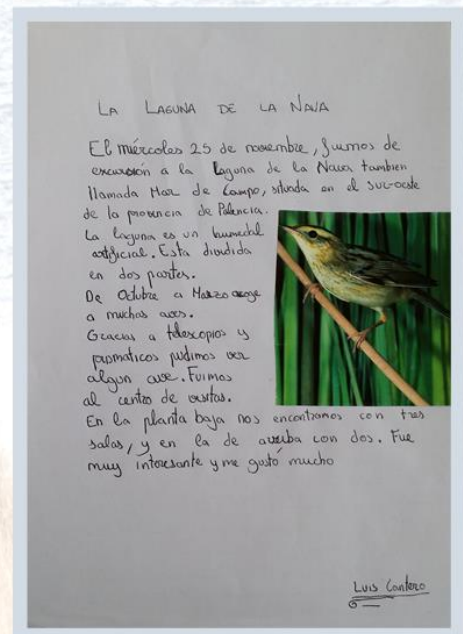 LA LAGUNA DE LA NAVA
El miércoles 25 de noviembre, fuimos de
excursión a la Laguna de la Nava tambien
llamada Mar de Campo, situada en el sur-oeste
de la provincia de Palencia.
La laguna es un humedal
artificial. Esta dividida
en dos partes.
De Octubre a Marzo acoge
a muchas aves.
Gracias a telescopios y
prismaticos pudimos ver
algun ave. Fuimos
al centro de visitas.
En la planta baja nos encontramos con tres
salas, y en la de arriba con dos. Fue
muy interesante y me gustó mucho
Luis Cantero